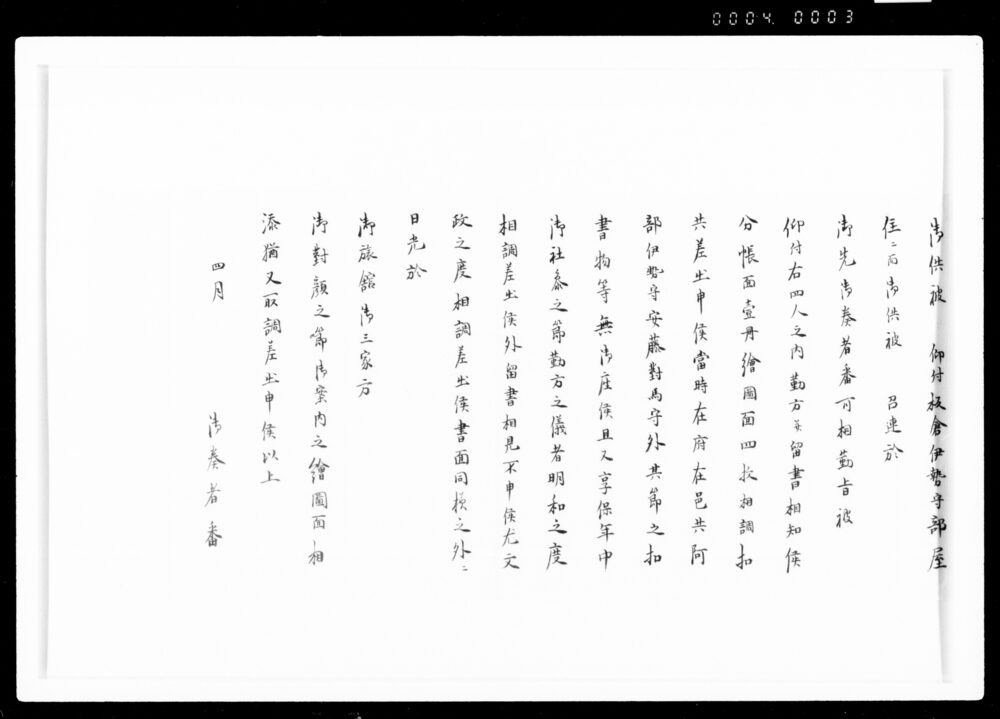 0004. 0003
御供被　仰付板倉伊勢守部屋
住ニ而御供被　召連於
御先御奏者番可相勤旨被
仰付右四人之内勤方并留書相知候
分帳面壹冊繪圖面四枚相調扣
共差出申候當時在府在邑共阿
部伊勢守安藤對馬守外其節之扣
書物等無御座候且又享保年中
御社參之節勤方之儀者明和之度
相調差出候外留書相見不申候尤文
政之度相調差出候書面同様之外ニ
日光於
御旅舘御三家方
御對顔之節御案内之繪圖面相
添猶又取調差出申候以上
四月
御奏者番